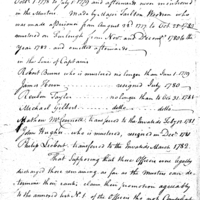 1778 to July 1779 and afterwards
in the Muster. Made by Major Carlton Bedeau who
was made from Augt 28 1777 to Oct 25 1782
mustered on Furlough from Nov. and Decemr 1780 to the
Year 1783 and omitted afterwards
in the Line of Captains
Robert Burns who is mustered no longer than June 1. 1779
James Heron resigned July 1780
Reuben Taylor no longer than to Dec 31. 1782
Michael Gilbert ditto
Matthew McConnell transferred to the Invalids July 1781
John Hughes who is mustered, resigned in Decr 1781
Philip Liebert transferred to the Invalids March 1782
That supposing that these Officers were legally
discharged their remaining as far as the Musters can de-
termine their ranks, claim their promotion agreeably
to the annexed list No. 1 of the Officers the